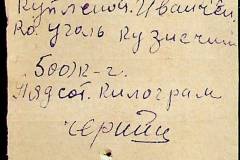 Купленой. Иванчен
ко. Уголь Кузнечний
500) К-г.
Пядсот. Килограм